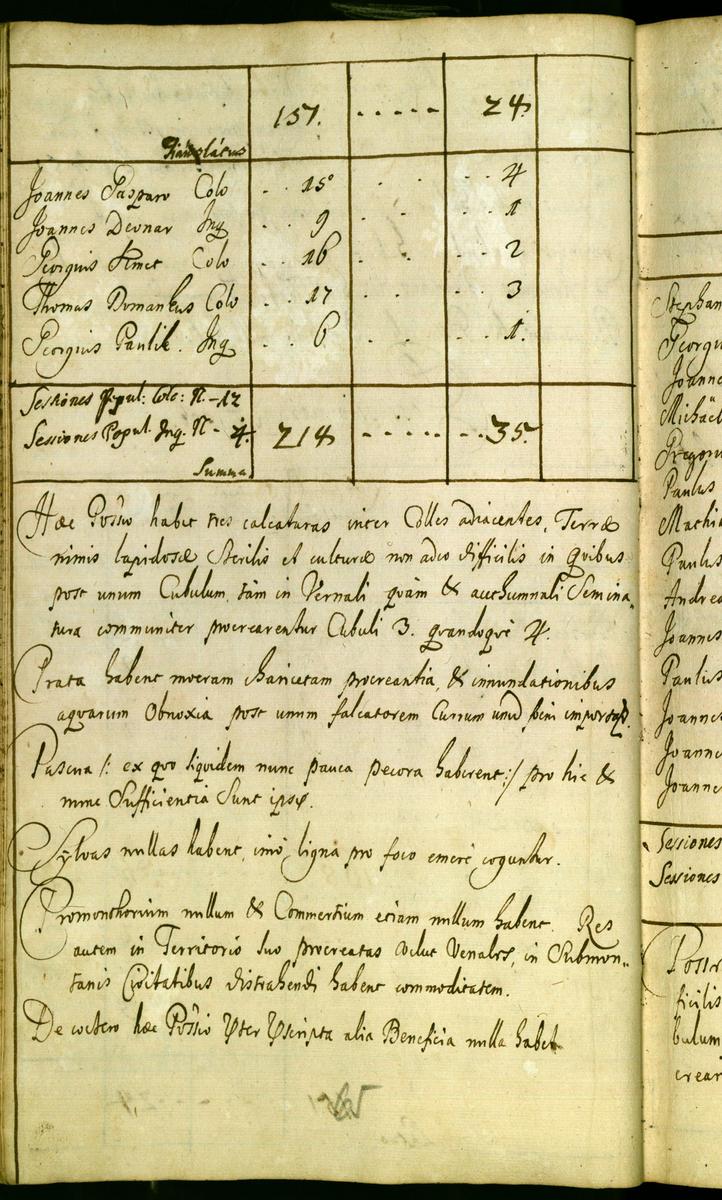 157. . . . . . 24.
Translatus
Joannes Gaspar Colo . . 15 . . . . 4
Joannes Deonar Inq . . 9 . . . . 1
Georgius Colo . . 16 . . . . 2
Thomas Domankus Colo . . 17 . . . . 3
Georgius Paulik. Inq . . 6 . . . . 1.
Sessiones Popul: Colo: N. - 12
Sessiones Popul. Inq. N - 4. 214 . . . . . . . 35.
Summa.
Hæc Possio habet tres calcaturas inter Colles adiacentes, Terræ
nimis lapidosæ Sterilis et culturæ non adeo difficilis in quibus
post unum Cubulum, tam in Vernali quàm & authumnali Semina-
tura communiter procrearentur Cubuli 3. quandoquè 4.
Prata habent meram Charicetam procreantia, & innundationibus
aquarum Obnoxia post unum falcatorem Currum unum fœni
Pascua /: ex quo siquidem nunc pauca pecora haberent :/ pro hic &
nunc Sufficientia Sunt ipsis.
Sylvas nullas habent, imò ligna pro foco emere coguntur.
Promonthorium nullum & Commertium etiam nullum habent. Res
autem in Territorio Suo procreatas velut Venales, in Submon-
tanis Civitatibus distrahendi habent commoditatem.
De cœtero hæc Possio alia Beneficia nulla habet
Stephan
Georgi
Joanne
Michaël
Gregori
Paulus
Mathi
Paulus
Andrea
Joannes
Paulus
Joannes
Joanne
Joanne
Sessiones
Sessiones
Possi
ficilis
bulum
crear